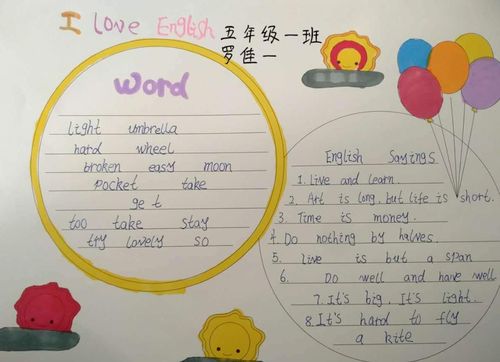 I Love English
五年级一班
罗佳一
word
light umbrella
hard wheel
broken easy moon
Pocket take
get
too take stay
try lovely so
English Sayings
1. Live and learn
2. Art is long, but life is short.
3. Time is money.
4. Do nothing by halves.
5. live is but a span
6. Do well and have well
7. It's big, It's light.
8. It's hard to fly
a kite